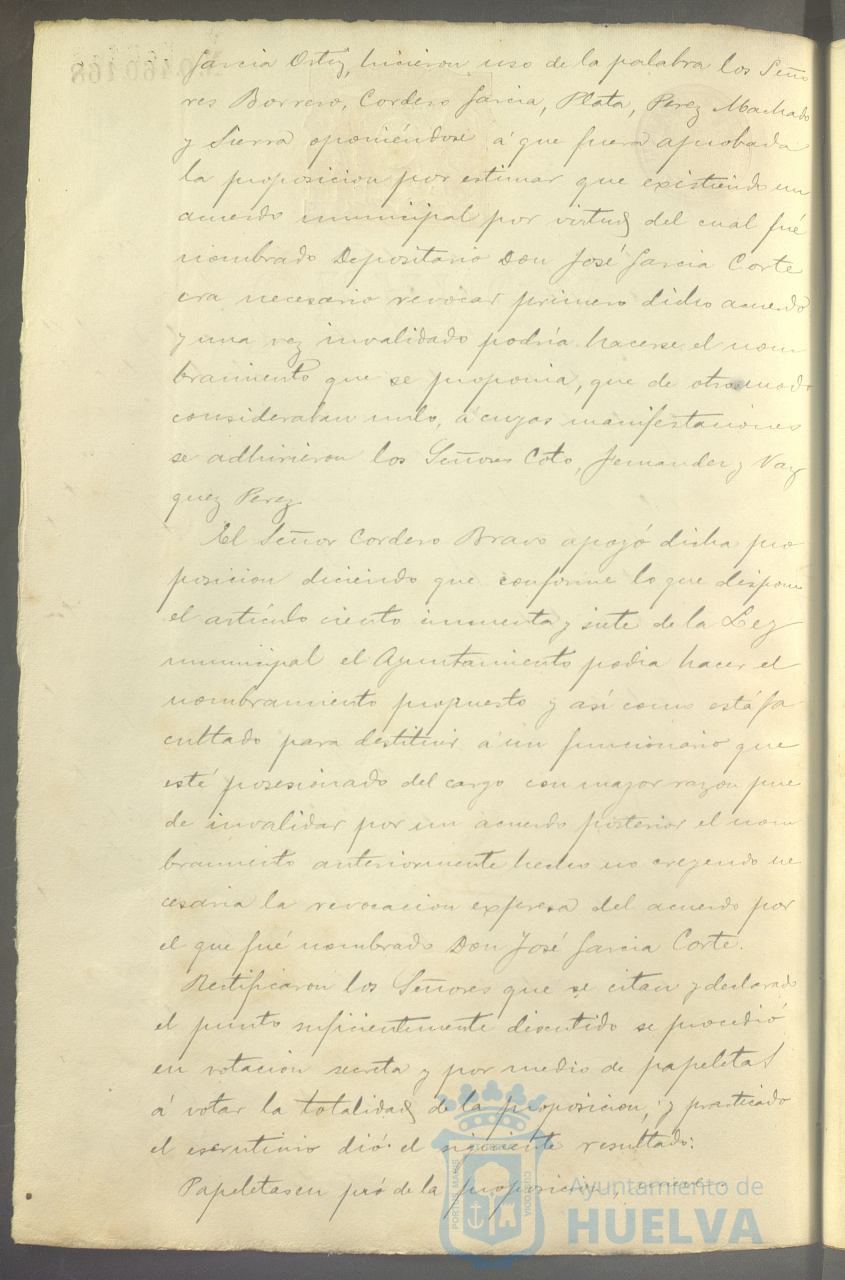 Garcia Ortiz, hicieron uso de la palabra los Seño
res Borrero, Cordero Garcia, Plata, Perez Machado
y Sierra oponiéndose á que fuera aprobada
la proposicion por estimar que existiendo un
acuerdo municipal por virtud del cual fué
nombrado Depositario Don José Garcia Corte
era necesario revocar primero dicho acuerdo
y una vez invalidado podría hacerse el nom
bramiento que se proponia, que de otro modo
consideraban nulo, á cuyas manifestaciones
se adhirieron los Señores Coto, Fernandez y Vaz
quez Perez
El Señor Cordero Bravo apoyó dicha pro
posicion diciendo que conforme lo que dispone
el artículo ciento cincuenta y siete de la Ley
municipal el Ayuntamiento podia hacer el
nombramiento propuesto y así como está fa
cultado para destituir á un funcionario que
esté posesionado del cargo con mayor razon pue
de invalidar por un acuerdo posterior el nom
bramiento anteriormente hecho no creyendo ne
cesaria la revocacion expresa del acuerdo por
el que fué nombrado Don José Garcia Corte.
Rectificaron los Señores que se citan y declarado
el punto suficientemente discutido se procedió
en votacion secreta y por medio de papeletas
á votar la totalidad de la proposicion, y practicado
el escrutinio dió el siguiente resultado:
Papeletas en pró de la proposicion,
Ayuntamiento de
HUELVA
PORTUS MARIS
CUSTODIA